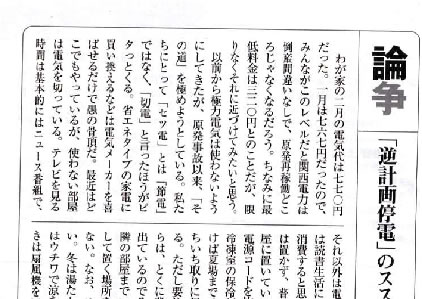 論争
「逆計画停電」のスス
わが家の二月の電気代は七七〇円
だった。一月は七六七円だったので、
みんながこのレベルだと関西電力は
倒産間違いなしで、原発再稼働どこ
ろじゃなくなるだろう。ちなみに最
低料金は三二〇円とのことだが、限
りなくそれに近づけてみたいと思う。
以前から極力電気は使わないよう
にしてきたが、原発事故以来、「そ
の道」を極めようとしている。私た
ちにとって「セツ電」とは「節電」
ではなく、「切電」と言ったほうがピ
タッとくる。省エネタイプの家電に
買い換えるなどは電気メーカーを喜
ばせるだけで愚の骨頂だ。最近はど
こでもやっているが、使わない部屋
は電気を切っている。テレビを見る
時間は基本的にはニュース番組で、
それ以外は電
は読書生活に
消費すると思
は置かず、普
屋に置いてい
電源コードを
冷凍室の保冷
けば夏場まで
ちいち取りに
る。ただし要
らは、とくに
出ているので
隣の部屋まで
して置く場所
ない。なお、
い。冬は湯た
はウチワで涼
きは扇風機を